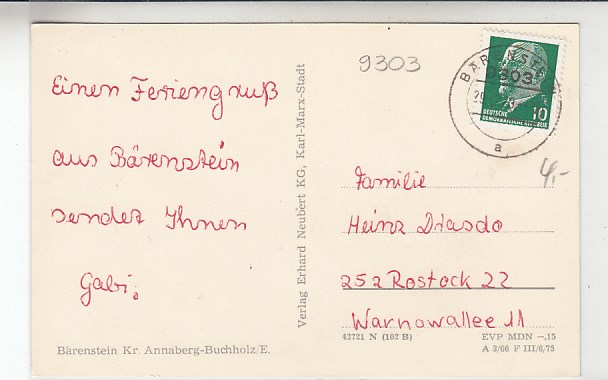 Einen Feriengruß
aus Bärenstein
sendet Ihnen
Gabi.
Bärenstein Kr. Annaberg-Buchholz/E.
Verlag Erhard Neubert KG, Karl-Marx-Stadt
9303
9303
a
10
DEUTSCHE
DEMOKRATISCHE REPUBLIK
4,-
Familie
Heinz Drasdo
252 Rostock 22
Warnowallee 11
43721 N (102 B)
EVP MDN –,15
A 2/66 F III/6,75